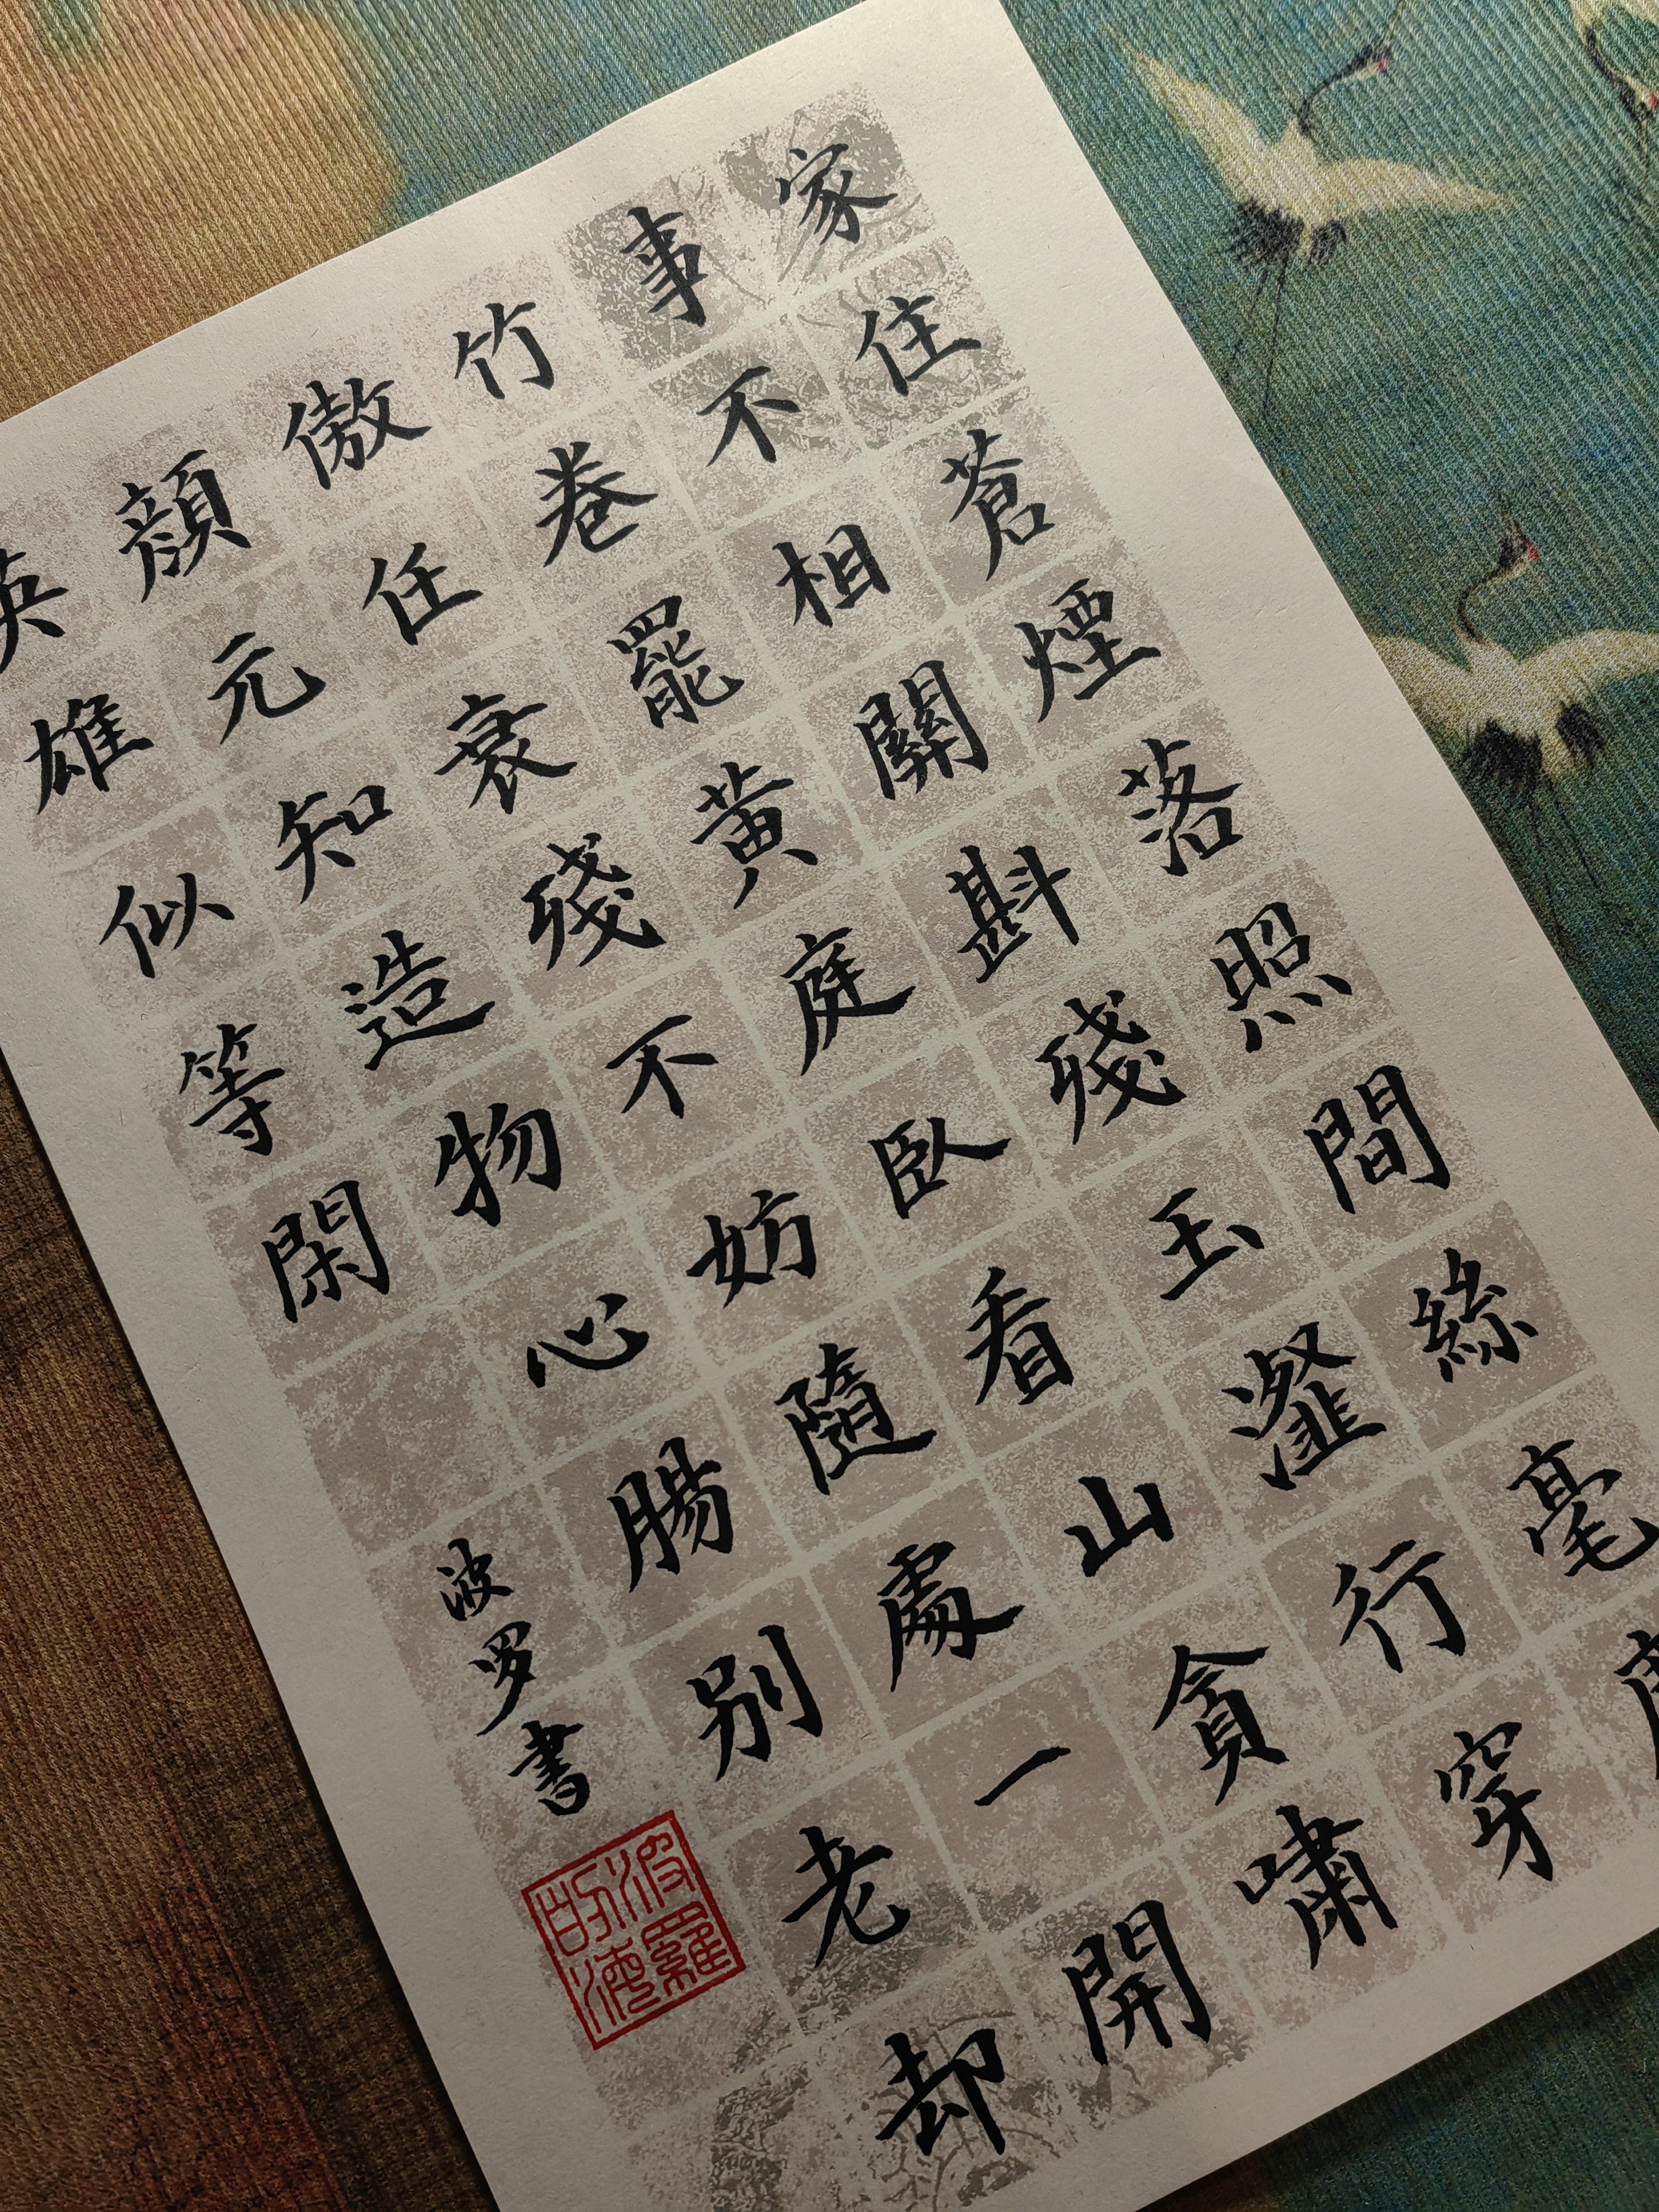 家住蒼煙落照間絲毫
事不相關斟殘玉瀣行穿
竹卷罷黄庭臥看山貪嘯
傲任衰殘不妨隨處一開
顔元知造物心腸別老却
英雄似等閑
波罗書
波羅的海